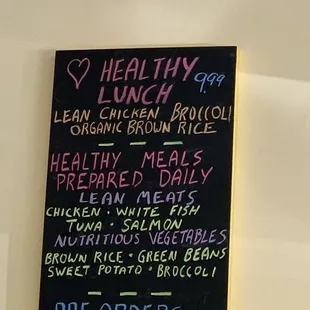 HEALTHY 9.99
LUNCH
LEAN CHICKEN BROCCOLI
ORGANIC BROWN RICE
HEALTHY MEALS
PREPARED DAILY
LEAN MEATS
CHICKEN · WHITE FISH
TUNA · SALMON
NUTRITIOUS VEGETABLES
BROWN RICE · GREEN BEANS
SWEET POTATO · BROCCOLI
PRE ORDERS